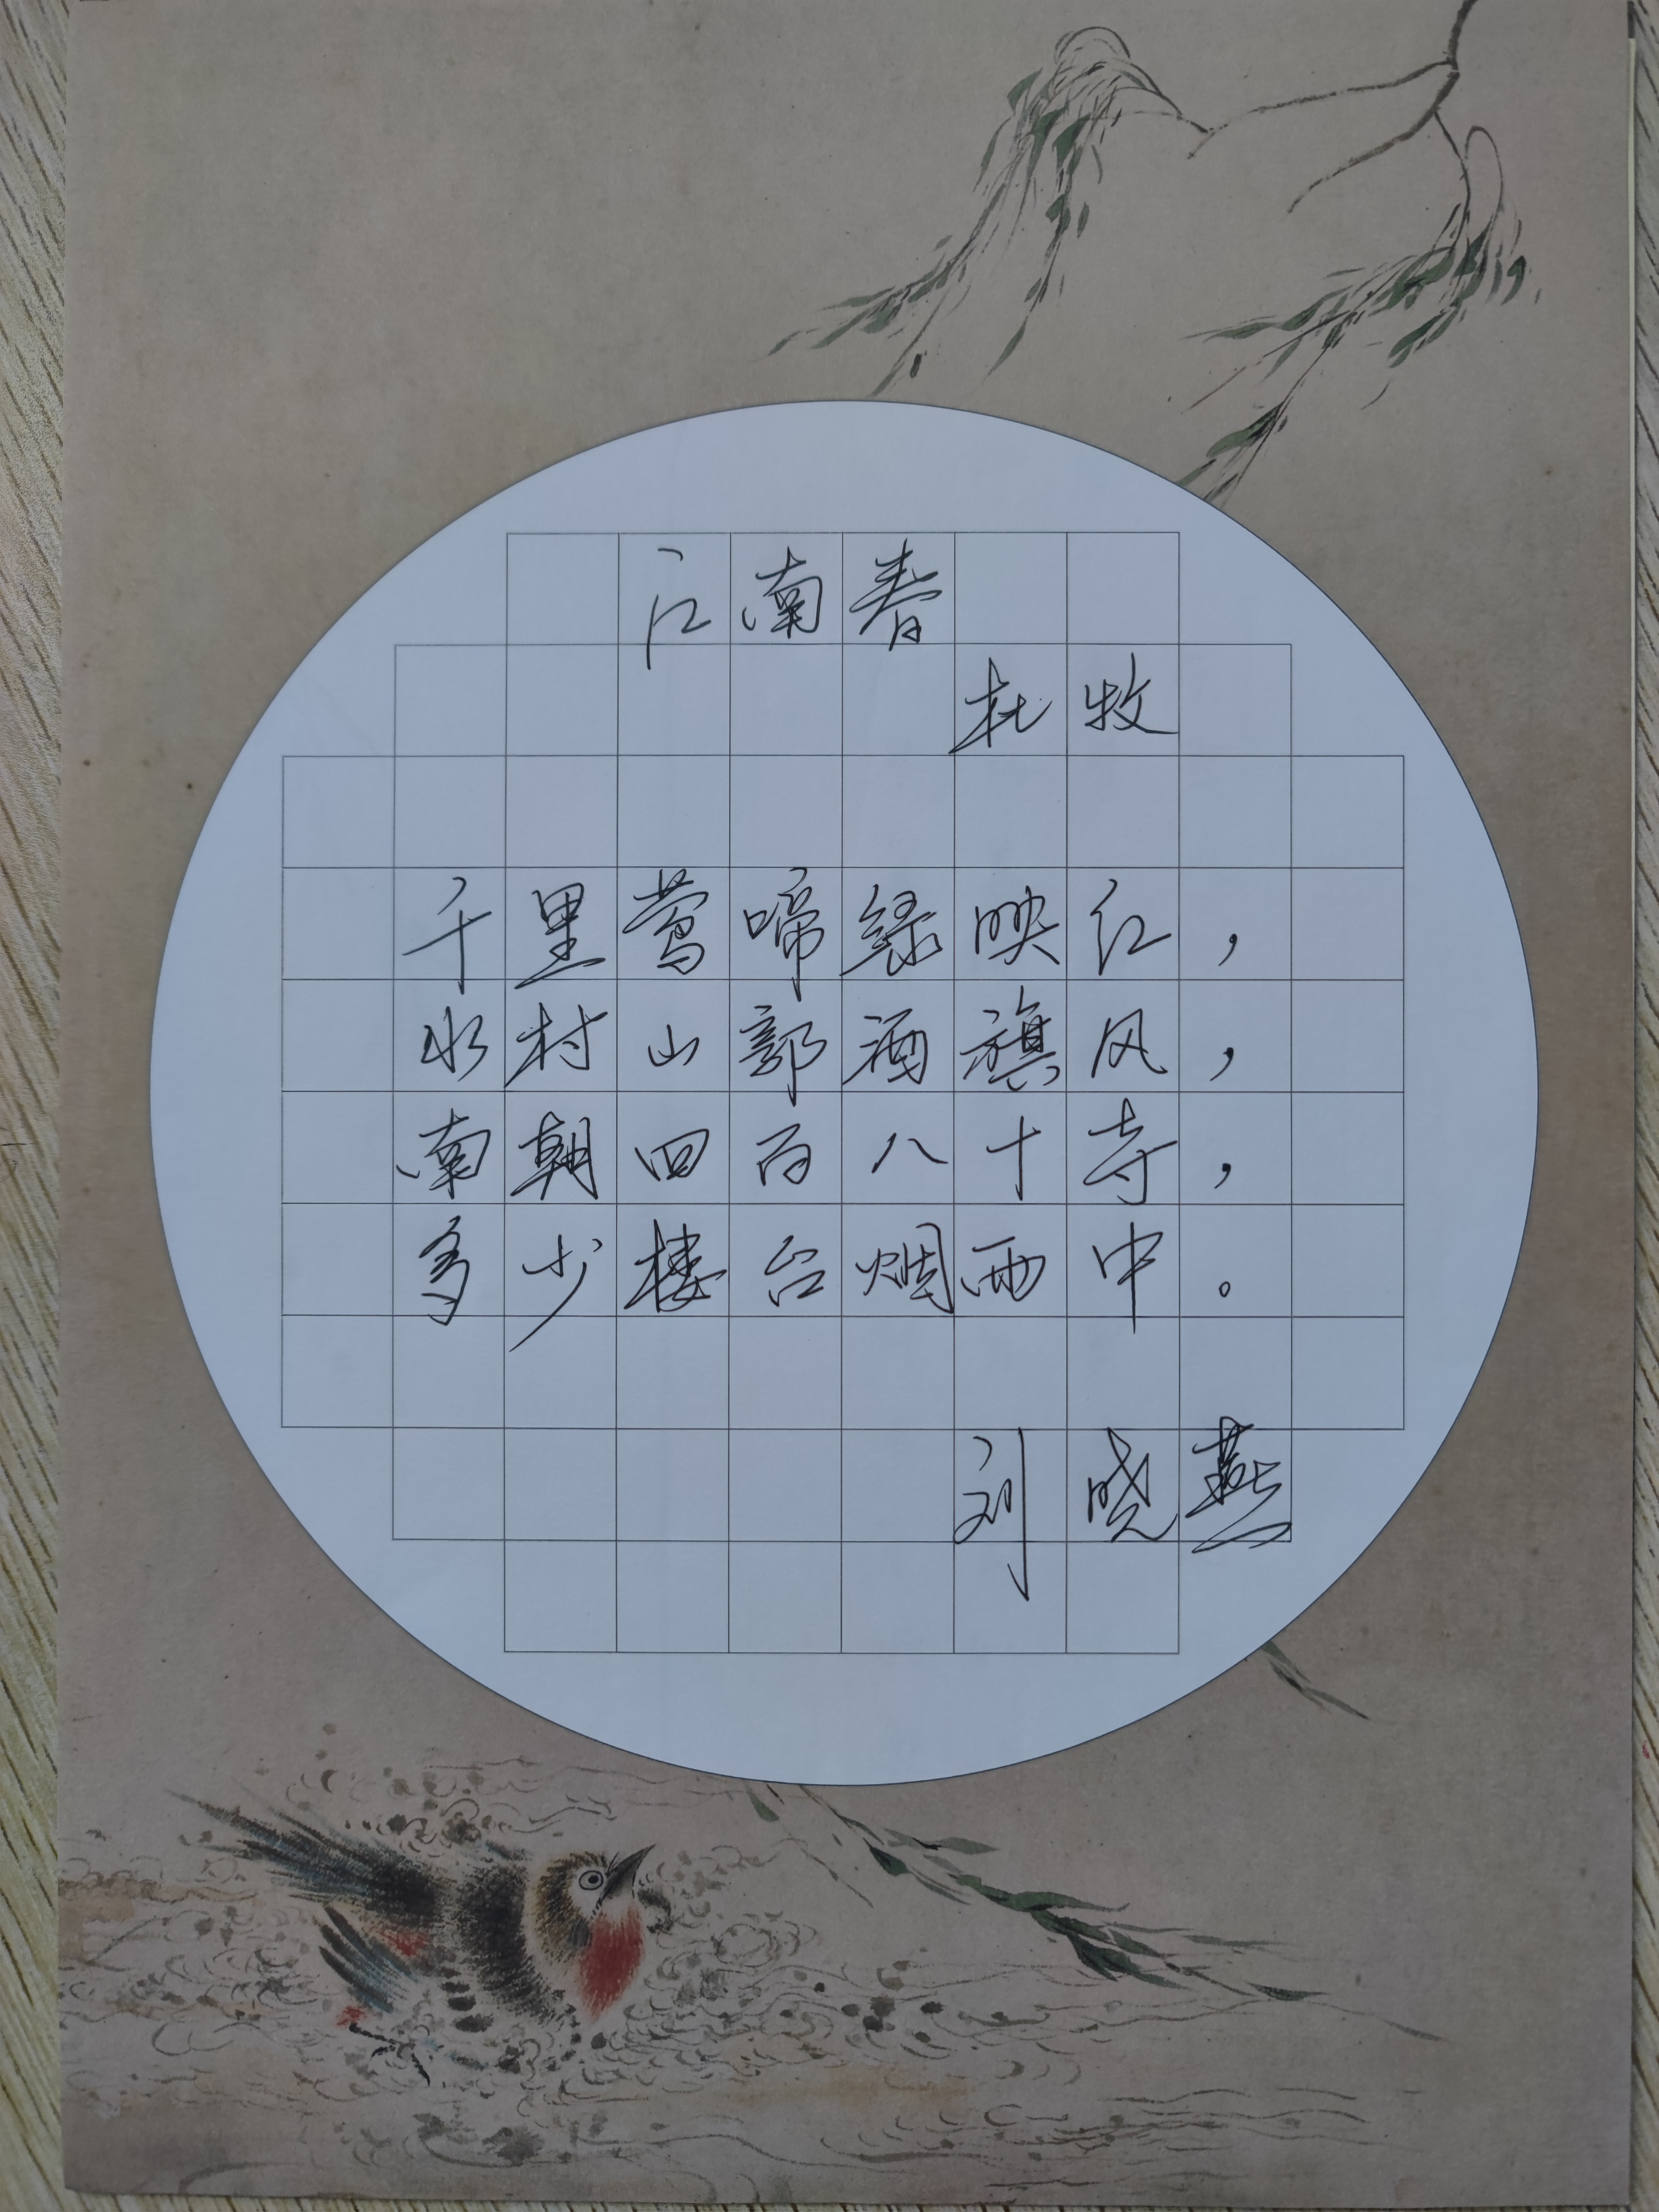 江南春
杜牧
千里莺啼绿映红，
水村山郭酒旗风，
南朝四百八十寺，
多少楼台烟雨中。
刘晓燕